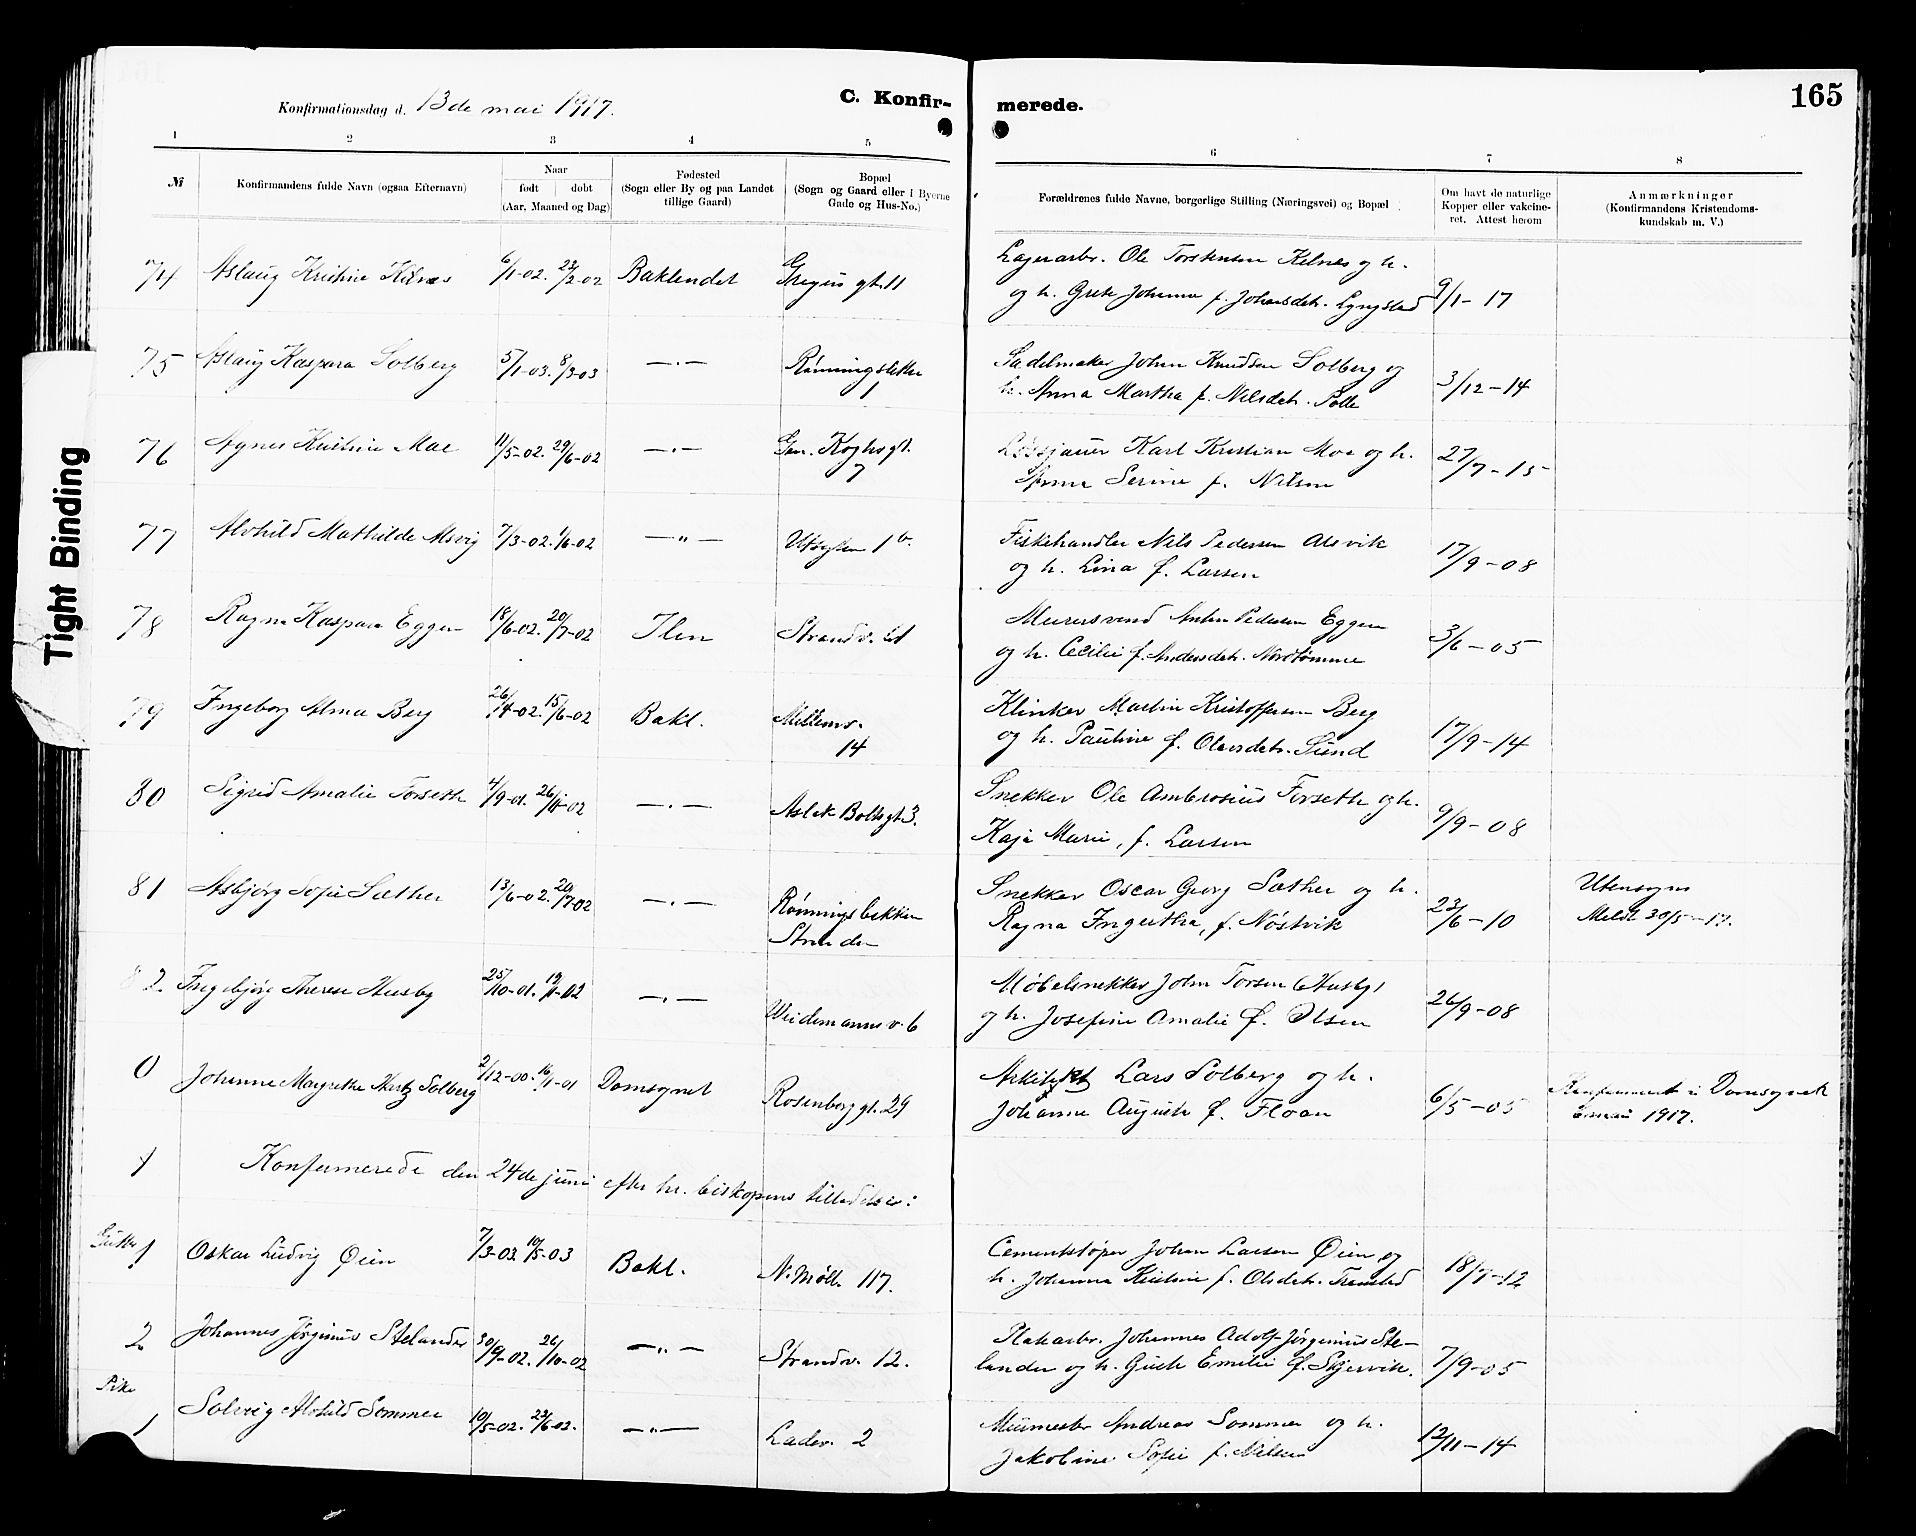 165
Konfirmationsdag d. 13de mai 1917.
C. Konfir-
merede.
1 2 3 4 5 6 7 8
№
Konfirmandens fulde Navn (ogsaa Efternavn)
Naar
født døbt
(Aar, Maaned og Dag)
Fødested
(Sogn eller By og paa Landet
tillige Gaard)
Bopæl
(Sogn og Gaard eller i Byerne
Gade og Hus-No.)
Forældrenes fulde Navne, borgerlige Stilling (Næringsvei) og Bopæl
Om havt de naturlige
Kopper eller vakcine-
ret. Attest herom
Anmærkninger
(Konfirmandens Kristendoms-
kundskab m. V.)
74 Aslaug Kristine Kilnes 6/1-02. 23/2-02 Baklendet gt. 11
Lagerarbr. Ole Torstensen Kilnes og h.
og h. Grete Johanna f. Johansdtr. Lyngstad 9/1-17
75 Aslaug Kaspara Solberg 5/1-03. 8/3-03 —.— Rønningsletta
1
Sadelmaker Johan Knudsen Solberg og
h. Anna Martha f. Nilsdtr. 3/12-14
76 Agnes Kristine Moe 11/5-02. 29/6-02 —.— Gen. gt.
7
Karl Kristian Moe og h.
Anna Serine f. Nilsen 27/7-15
77 Alvhild Mathilde Alsvig 7/3-02. 1/6-02 —"— 1 b.
Fiskehandler Nils Pedersen Alsvik
og h. Lina f. Larsen 17/9-08
78 Ragna Kaspara Eggen 18/6-02. 20/7-02 Ilen Strandv.
Murersvend Anton Pedersen Eggen
og h. Cecilie f. Andersdtr. Nordtømme 3/6-05
79 Ingeborg Alma Berg 26/4-02. 15/6-02 Bakl. Mellemv.
14
Klinker Martin Kristoffersen Berg
og h. Pauline f. Olausdtr. Sund 17/9-14
80 Sigrid Amalie Forseth 4/9-01. 26/-02 —.— Aslak Boltsgt. 3.
Snekker Ole Ambrosius Forseth og h.
Kaja Marie, f. Larsen 9/9-08
81 Asbjørg Sofie Sæther 13/6-02. 20/7-02 —.— Rønningsbekken
Strinden
Snekker Oscar Georg Sæther og h.
Ragna Ingertha, f. Nøstvik 23/6-10
Utensogns
Meldt 30/5-17.
82. Ingebjørg Therese Husby 25/10-01. 19/1-02 —.— Weidemannsv. 6
Møbelsnekker John Torsen Husby,
og h. Josefine Amalie f. Olsen 26/9-08
0 Johanne Margrethe Hertz Solberg 2/12-00. 16/1-01 Domsognet Rosenborggt. 29
Arkitekt Lars Solberg og h.
Johanne Auguste f. Floan 6/5-05
Konfirmeret i Domsognet
6 mai 1917.
1 Konfirmerede den 24de juni efter hr. biskopens tilladelse:
Gutter
1 Oskar Ludvig Øien 7/3-03. 10/5-03 Bakl. N. Møll. 117.
Cementstøper Johan Larsen Øien og
h. Johanna Kristine f. Olsdtr. 18/7-12
2 Johannes Jørginus Stelander 30/9-02. 26/10-02 —"— Strandv. 12.
Plakarbr. Johannes Adolf Jørginius Ste-
lander og h. Emilie f. Skjervik. 7/9-05
Pike
1 Solveig Alvhild Sommer 10/5-02. 22/6-02. —"— Ladev. 2
Murmester Andreas Sommer og h.
Jakobine Sofie f. Nilsen 12/11-14
Tight Binding